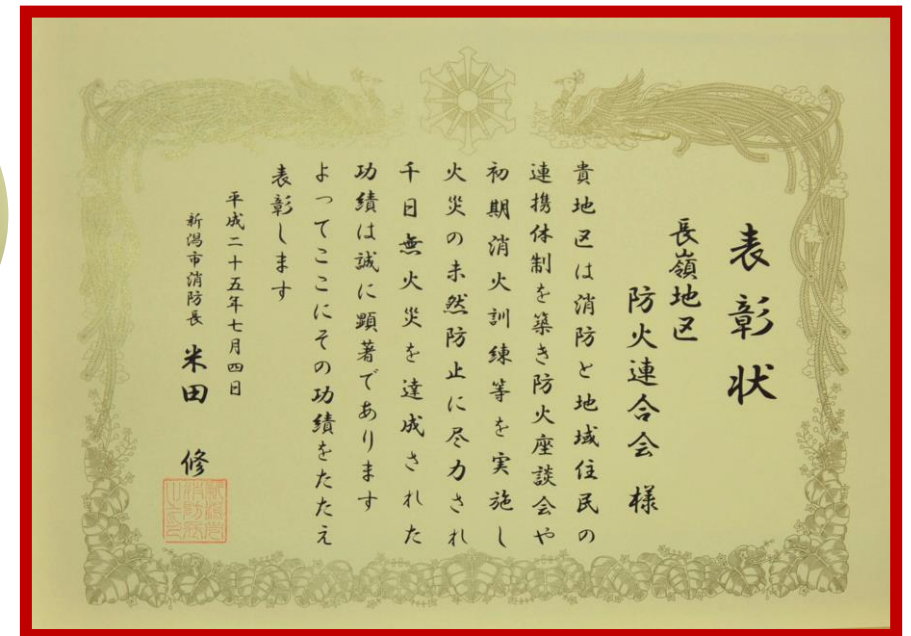 表彰状
長嶺地区
防火連合会 様
貴地区は消防と地域住民の
連携体制を築き防火座談会や
初期消火訓練等を実施し
火災の未然防止に尽力され
千日無火災を達成された
功績は誠に顕著であります
よってここにその功績をたたえ
表彰します
平成二十五年七月四日
新潟市消防長 米田 修